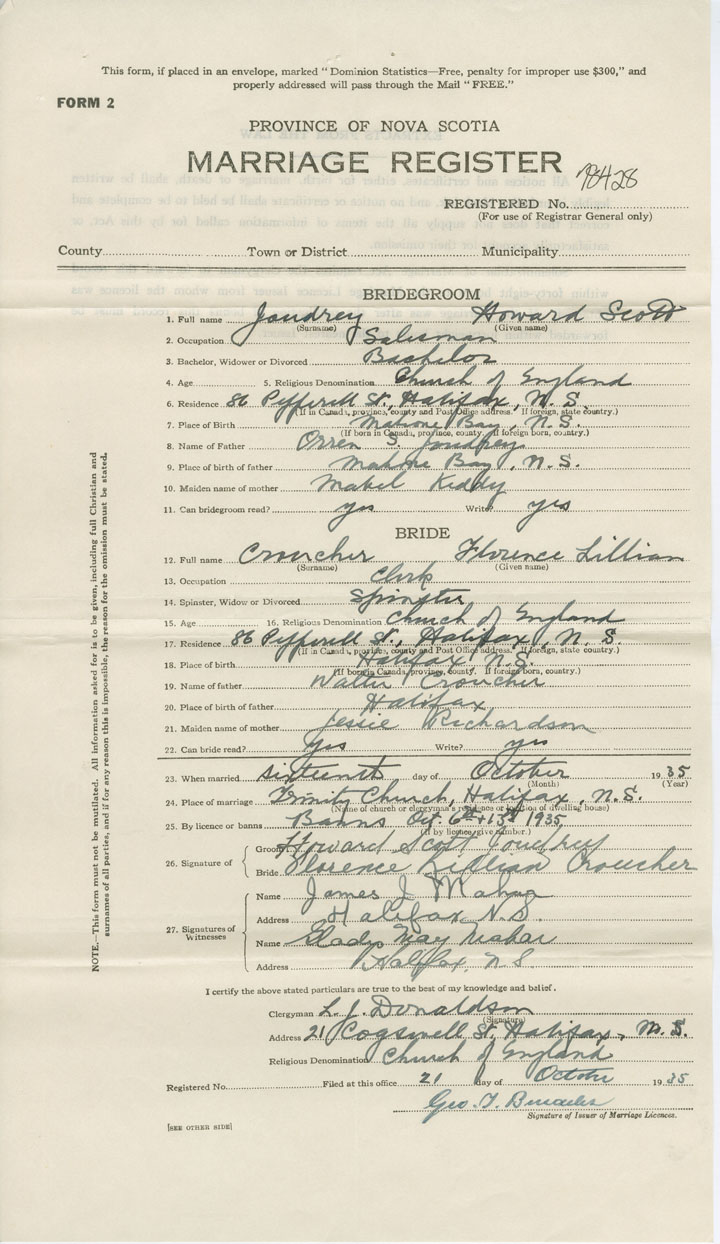 This form, if placed in an envelope, marked "Dominion Statistics—Free, penalty for improper use $300," and
properly addressed will pass through the Mail "FREE."
FORM 2
PROVINCE OF NOVA SCOTIA
MARRIAGE REGISTER
REGISTERED No. 78428
(For use of Registrar General only)
County Town or District Municipality
BRIDEGROOM
1. Full name Joudrey Howard Scott
(Surname) (Given name)
2. Occupation Salesman
3. Bachelor, Widower or Divorced Bachelor
4. Age 5. Religious Denomination Church of England
6. Residence 86 Pepperell St., Halifax, N.S.
(If in Canada, province, county and Post Office address. If foreign, state country.)
7. Place of Birth Mahone Bay, N.S.
(If born in Canada, province, county. If foreign born, country.)
8. Name of Father Orren S. Joudrey
9. Place of birth of father Mahone Bay, N.S.
10. Maiden name of mother Mabel Keddy
11. Can bridegroom read? yes Write? yes
BRIDE
12. Full name Croucher Florence Lillian
(Surname) (Given name)
13. Occupation Clerk
14. Spinster, Widow or Divorced Spinster
15. Age 16. Religious Denomination Church of England
17. Residence 86 Pepperell St., Halifax, N.S.
(If in Canada, province, county and Post Office address. If foreign, state country.)
18. Place of birth Halifax N.S.
(If born in Canada, province, county. If foreign born, country.)
19. Name of father Walter Croucher
20. Place of birth of father Halifax
21. Maiden name of mother Jessie Richardson
22. Can bride read? Yes Write? yes
23. When married sixteenth day of October 1935
(Month) (Year)
24. Place of marriage Trinity Church, Halifax, N.S.
(Name of church or clergyman's residence or location of dwelling house)
25. By licence or banns Banns Oct. 6th + 13th 1935
(If by licence, give number.)
26. Signature of
Groom Howard Scott Joudrey
Bride Florence Lillian Croucher
27. Signatures of Witnesses
Name James J
Address Halifax N.S.
Name Gladys May
Address Halifax, N.S.
I certify the above stated particulars are true to the best of my knowledge and belief.
Clergyman L. J. Donaldson
(Signature)
Address 21 Cogswell St. Halifax, N.S.
Religious Denomination Church of England
Registered No. Filed at this office 21 day of October 1935
Geo. T.
Signature of Issuer of Marriage Licences.
[SEE OTHER SIDE]
NOTE.—This form must not be mutilated. All information asked for is to be given, including full Christian and
surnames of all parties, and if for any reason this is impossible, the reason for the omission must be stated.